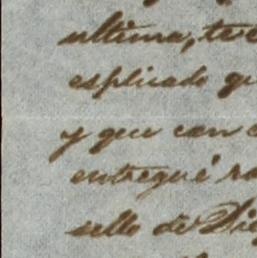 ultima, te
esplicado qu
y que con
entregué
sello de Die